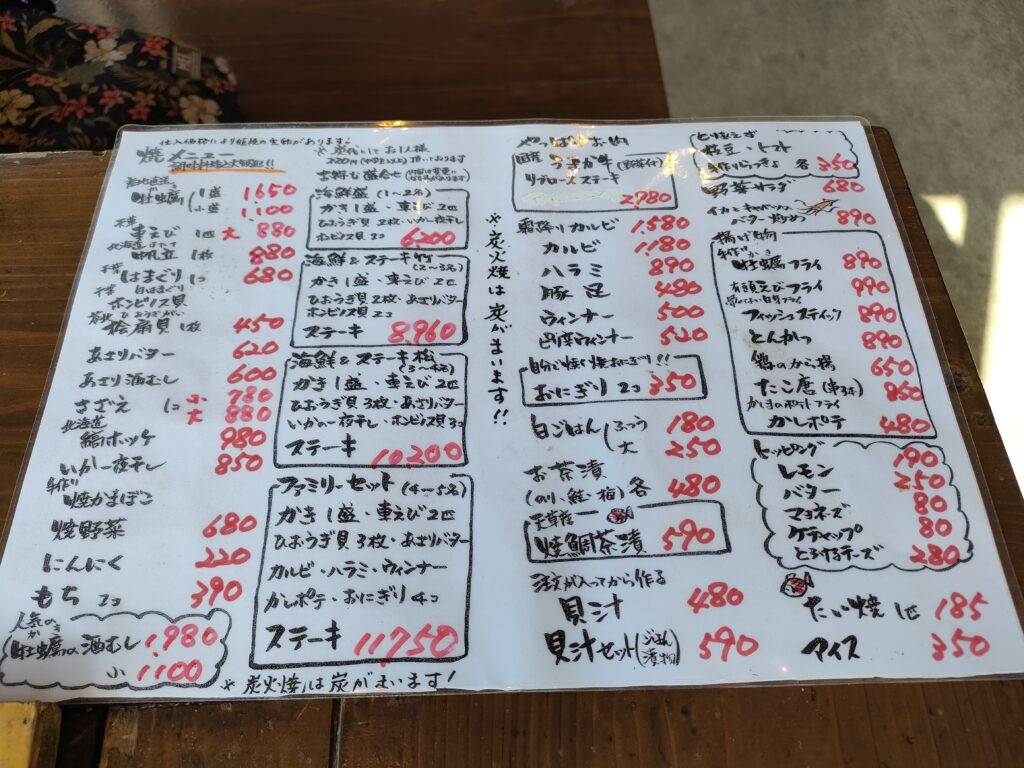 仕入価格により価格の変動があります!
焼メニュー
牡蠣 1盛 1650
小盛 1,100
車えび 1匹 大 880
北海道ほたて
帆立 1枚 880
はまぐり 1コ 680
ホンビノス貝
ひおうぎがい
桧扇貝 1枚 450
あさりバター 620
あさり酒むし 600
さざえ 1コ 小 780
大 880
北海道
縞ホッケ 980
いか一夜干し 850
手作り
焼かまぼこ
焼野菜 680
にんにく 220
もち 2コ 390
人気の
かき
牡蠣の酒むし 1,980
小 1100
※炭火焼は炭がまいます!
※炭代としてお1人様
220円(中学生以上)頂いております
海鮮盛 (1〜2名)
かき1盛・車えび2匹
ひおうぎ貝2枚・いか一夜干し
ホンビノス貝3コ 6,200
海鮮&ステーキ竹
(2〜3名)
かき1盛・車えび2匹
ひおうぎ貝2枚・あさりバター
ホンビノス貝2コ
ステーキ 8,960
海鮮&ステーキ松
(3〜4名)
かき1盛・車えび2匹
ひおうぎ貝3枚・あさりバター
いか一夜干し・ホンビノス貝3コ
ステーキ 10,200
ファミリーセット (4〜5名)
かき1盛・車えび2匹
ひおうぎ貝3枚・あさりバター
カルビ・ハラミ・ウィンナー
かしポテ・おにぎり4コ
ステーキ 11,750
※炭火焼は炭がまいます!!
やっぱりお肉
国産 うまか牛 (野菜付)
リブロースステーキ
2980
霜降りカルビ 1,580
カルビ 1,180
ハラミ 890
豚足 480
ウィンナー 500
ウィンナー 520
自分で焼く焼おにぎり!!
おにぎり 2コ 350
白ごはん (ふつう 180
大 250
お茶漬
(のり・鮭・梅) 各 480
天草産
焼鯛茶漬 590
注文が入ってから作る
貝汁 480
貝汁セット (ごはん 漬物) 590
とりあえず
枝豆・トマト
手作りらっきょ 各 350
野菜サラダ 680
イカとキャベツの
バター炒め 890
揚げ物
手作り かき
牡蠣フライ 890
有頭えびフライ 990
骨のない白身フライ
フィッシュスティック 890
とんかつ 890
鶏のから揚 650
たこ唐 (串3本) 860
かしまのポテトフライ
かしポテ 480
トッピング
レモン 190
バター 250
マヨネーズ 80
ケチャップ 80
とろけるチーズ 280
たい焼 1匹 185
アイス 350